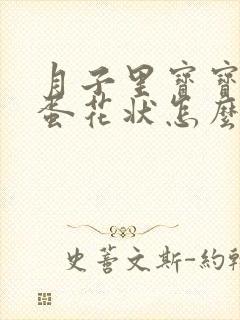 月子里寶寶
蛋花狀怎麼
史蒂文斯-約翰